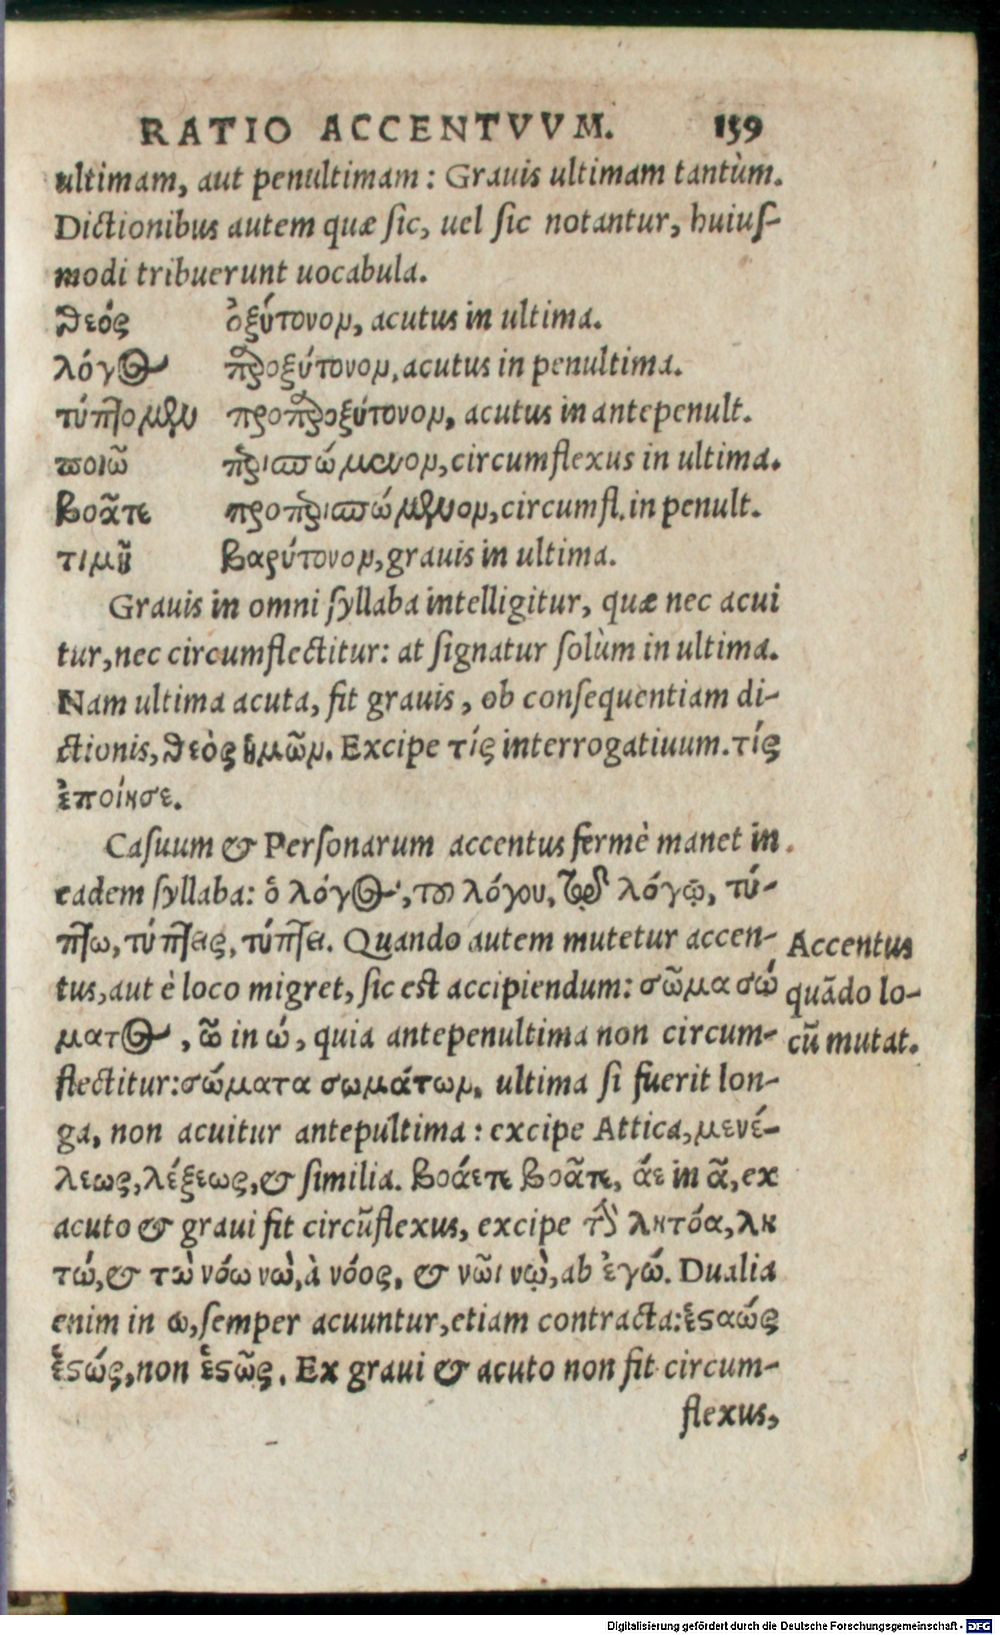 RATIO ACCENTVVM. 159
ultimam, aut penultimam: Grauis ultimam tantùm.
Dictionibus autem quæ sic, uel sic notantur, huius-
modi tribuerunt uocabula.
θεός ὀξύτονον, acutus in ultima.
λόγος παροξύτονον, acutus in penultima.
τύπτομεν προπαροξύτονον, acutus in antepenult.
ποιῶ περισπώμενον, circumflexus in ultima.
βοᾶτε προπερισπώμενον, circumfl. in penult.
βαρύτονον, grauis in ultima.
Grauis in omni syllaba intelligitur, quæ nec acui
tur, nec circumflectitur: at signatur solùm in ultima.
Nam ultima acuta, fit grauis, ob consequentiam di-
ctionis, θεὸς ἡμῶν. Excipe τίς interrogatiuum. τίς
ἐποίησε.
Casuum & Personarum accentus fermè manet in
eadem syllaba: ὁ λόγος, τοῦ λόγου, τῷ λόγῳ, τύ-
πτω, τύπτεις, τύπτει. Quando autem mutetur accen-
tus, aut è loco migret, sic est accipiendum: σῶμα σώ
ματος, ῶ in ώ, quia antepenultima non circum-
flectitur: σώματα σωμάτων. ultima si fuerit lon-
ga, non acuitur antepultima: excipe Attica, μενέ-
λεως, λέξεως, & similia. βοάετε βοᾶτε, άε in ᾶ, ex
acuto & graui fit circũflexus, excipe τὴν λητόα, λη
τώ, & τὼ νόω νὼ, à νόος. & νῶι νῲ, ab ἐγώ. Dualia
enim in ω, semper acuuntur, etiam contracta: ἑσταώς
ἑστώς, non ἑστῶς. Ex graui & acuto non fit circum-
flexus,
Accentus
quãdo lo-
cũ mutat.
Digitalisierung gefördert durch die Deutsche Forschungsgemeinschaft - DFG